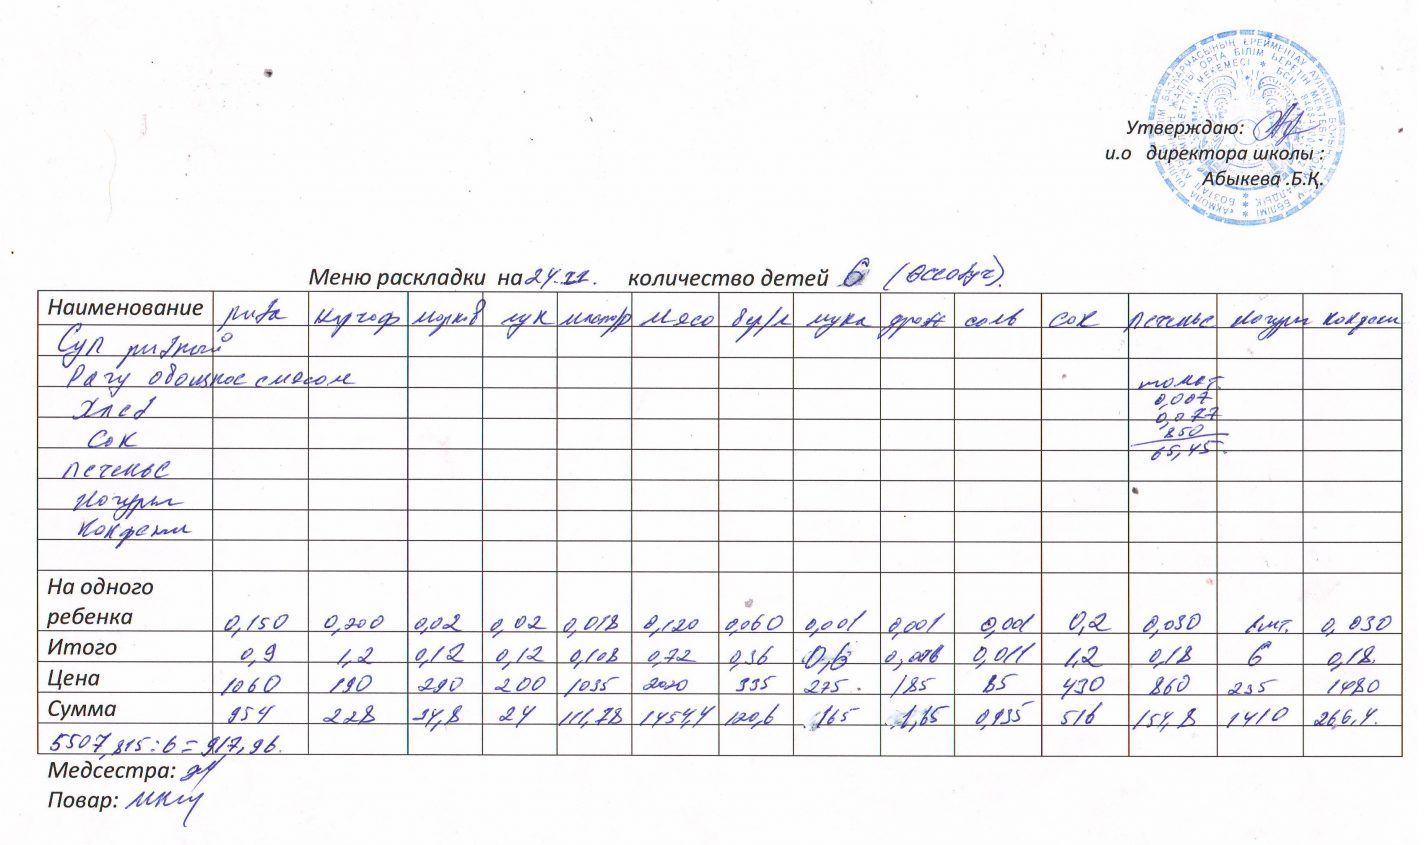 Утверждаю:
и.о директора школы :
Абыкева .Б.Қ.
Меню раскладки на 24.11. количество детей 6 (Всеобуч).
Наименование рыба картоф морков лук масло мясо мука дрож соль сок печенье йогурт конфеты
Суп рыбный
Рагу овощное с мясом
томат.
Хлеб 0,007
0,077
Сок 850
65,45.
печенье
йогурт
конфеты
На одного
ребенка 0,150 0,200 0,02 0,02 0,018 0,120 0,060 0,001 0,001 0,001 0,2 0,030 1шт. 0,030
Итого 0,9 1,2 0,12 0,12 0,108 0,72 0,36 0,6 0,006 0,011 1,2 0,18 6 0,18.
Цена 1060 190 290 200 1035 2020 335 275. 185 85 430 860 235 1480
Сумма 954 228 34,8 24 111,78 1454,4 120,6 165 1,65 0,935 516 154,8 1410 266,4.
5507,815:6=917,96.
Медсестра:
Повар: